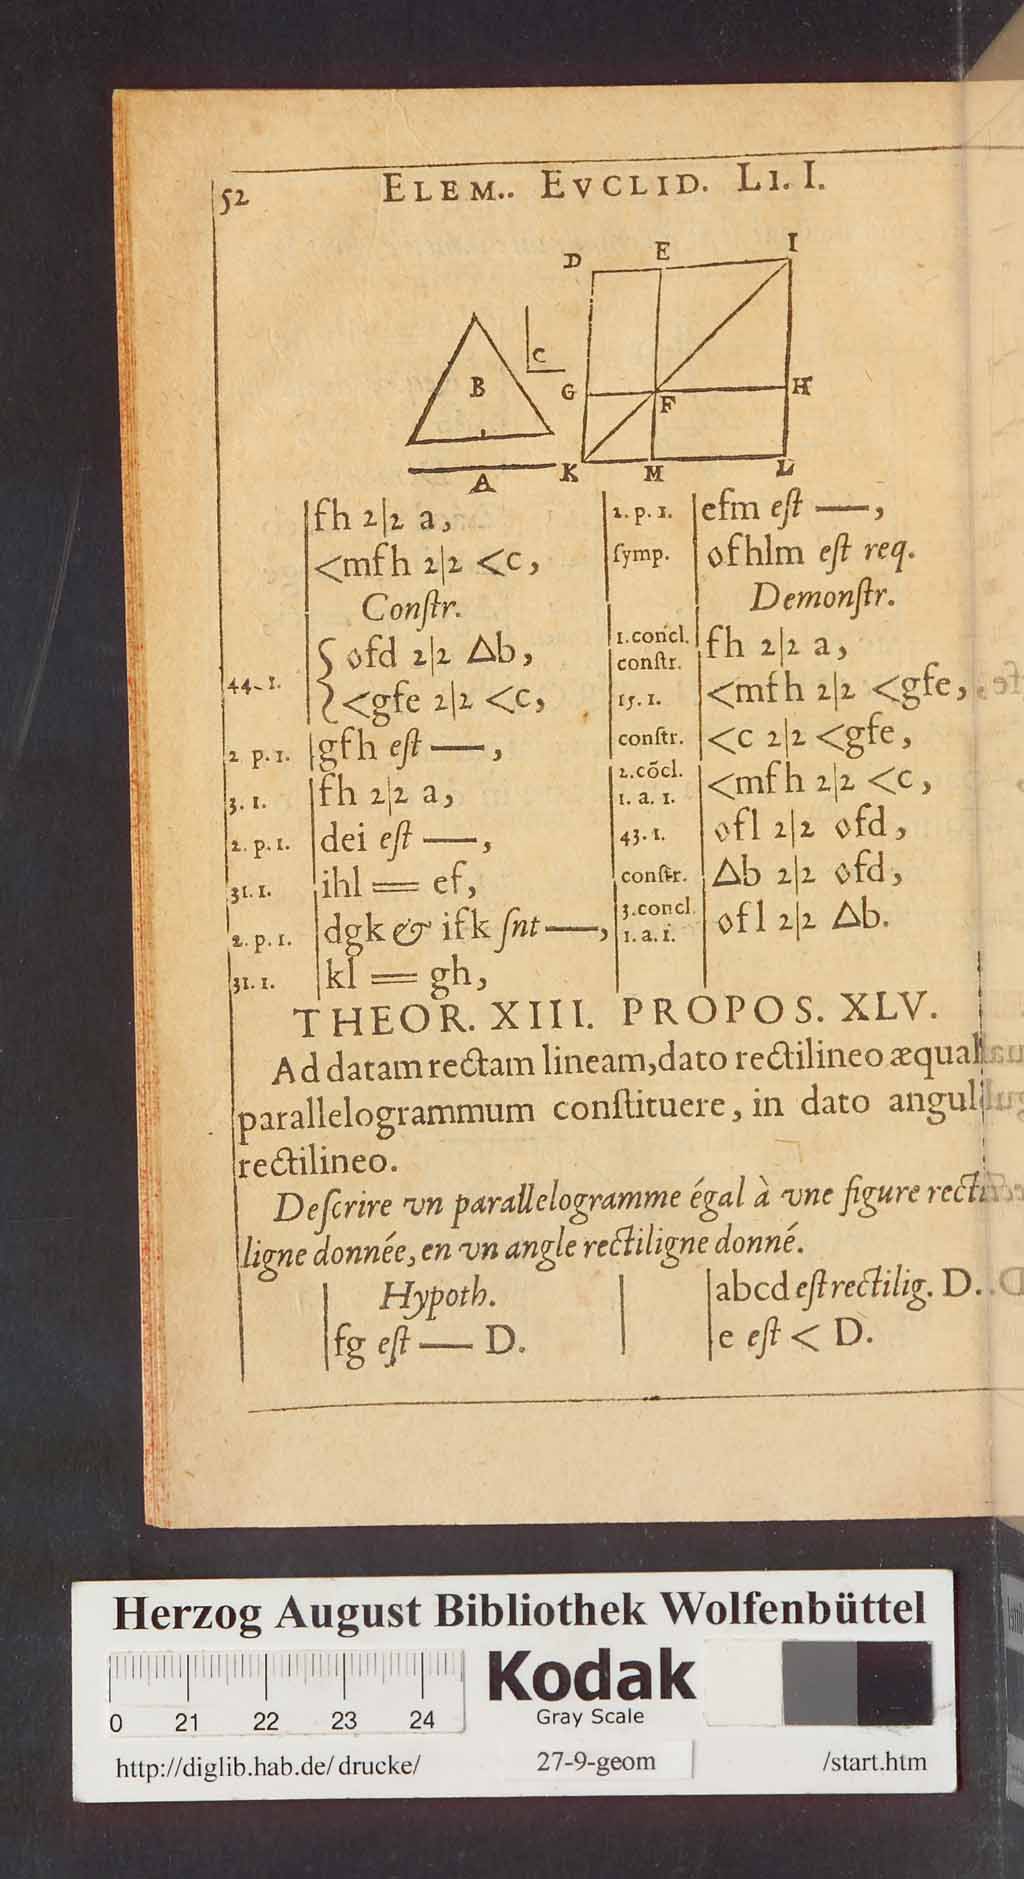 52 ELEM.. EVCLID. LI. I.
D E I
C
B G F H
K M L
A
fh 2|2 a,
<mfh 2|2 <c,
Conſtr.
44. 1. { ofd 2|2 Δb,
<gfe 2|2 <c,
2 p. 1. gfh eſt —,
3. 1. fh 2|2 a,
2. p. 1. dei eſt —,
31. 1. ihl = ef,
2. p. 1. dgk & ifk ſnt —,
31. 1. kl = gh,
2. p. 1. efm eſt —,
ſymp. ofhlm eſt req.
Demonſtr.
1. concl.
conſtr. fh 2|2 a,
15. 1. <mfh 2|2 <gfe,
conſtr. <c 2|2 <gfe,
2. cõcl.
1. a. 1. <mfh 2|2 <c,
43. 1. ofl 2|2 ofd,
conſtr. Δb 2|2 ofd,
3. concl.
1. a. 1. ofl 2|2 Δb.
THEOR. XIII. PROPOS. XLV.
Ad datam rectam lineam, dato rectilineo æquale
parallelogrammum conſtituere, in dato angul
rectilineo.
Deſcrire vn parallelogramme égal à vne figure recti
ligne donnée, en vn angle rectiligne donné.
Hypoth.
fg eſt — D.
abcd eſt rectilig. D.
e eſt < D.
Herzog August Bibliothek Wolfenbüttel
0 21 22 23 24
Kodak
Gray Scale
http://diglib.hab.de/drucke/ 27-9-geom /start.htm